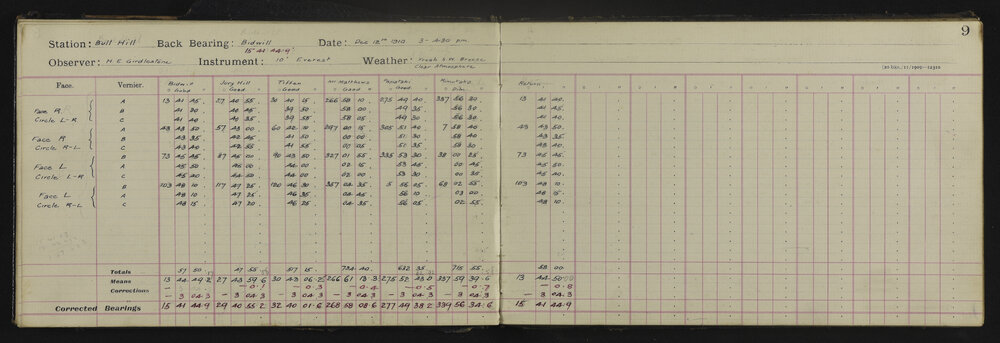 9
Station: Bull Hill Back Bearing: Bidwill Date: Dec 12th 1910 3-4.30 pm
15 41 44.9
Observer: H E Girdlestone Instrument: 10" Everest Weather: Fresh S.W. Breeze
Clear Atmosphere
Face. Vernier. Bidwill Jury Hill Tiffen Mt Matthews Papatahi Return
Good Good Good Good Good
A 13 41 45 27 40 55 30 40 15 266 58 10 275 49 40 337 56 20 13 41 40
Face R B 41 20 40 45 39 50 58 00 49 35 56 30 41 45
Circle L-R C 41 40 40 35 39 55 58 05 49 30 56 30 41 40
A 43 43 50 57 43 00 60 42 10 297 00 15 305 51 40 7 58 40 43 43 50
Face R B 43 35 42 45 41 50 00 00 51 30 58 40 43 35
Circle R-L C 43 40 42 55 41 55 00 05 51 35 58 30 43 40
B 73 45 45 87 45 00 90 43 50 327 01 55 335 53 30 38 00 25 73 45 45
Face L A 45 50 45 00 44 00 02 15 53 45 00 45 45 50
Circle L-R C 45 40 44 50 44 00 02 00 53 30 00 35 45 40
B 103 48 10 117 47 25 120 46 30 357 04 35 5 56 05 68 02 55 103 48 10
Face L A 48 10 47 25 46 35 04 45 56 10 03 00 48 15
Circle R-L C 48 15 47 20 46 25 04 35 56 05 02 55 48 10
Totals 57 50 47 55 517 15 734 40 632 35 715 55 58 00
Means 13 44 49.2 27 43 59.6 30 43 06.2 266 61 13.3 275 52 43.0 337 59 39.6 13 44 50.00
Corrections — — 0.1 — 0.3 — 0.4 — 0.5 — 0.7 — 0.8
— 3 04.3 — 3 04.3 — 3 04.3 — 3 04.3 — 3 04.3 — 3 04.3 — 3 04.3
Corrected Bearings 15 41 44.9 29 40 55.2 32 40 01.6 268 58 08.6 277 49 38.2 339 56 34.6 15 41 44.9